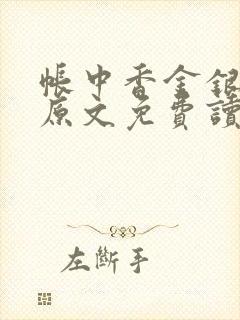 帳中香金銀
原文免費讀
左斷手